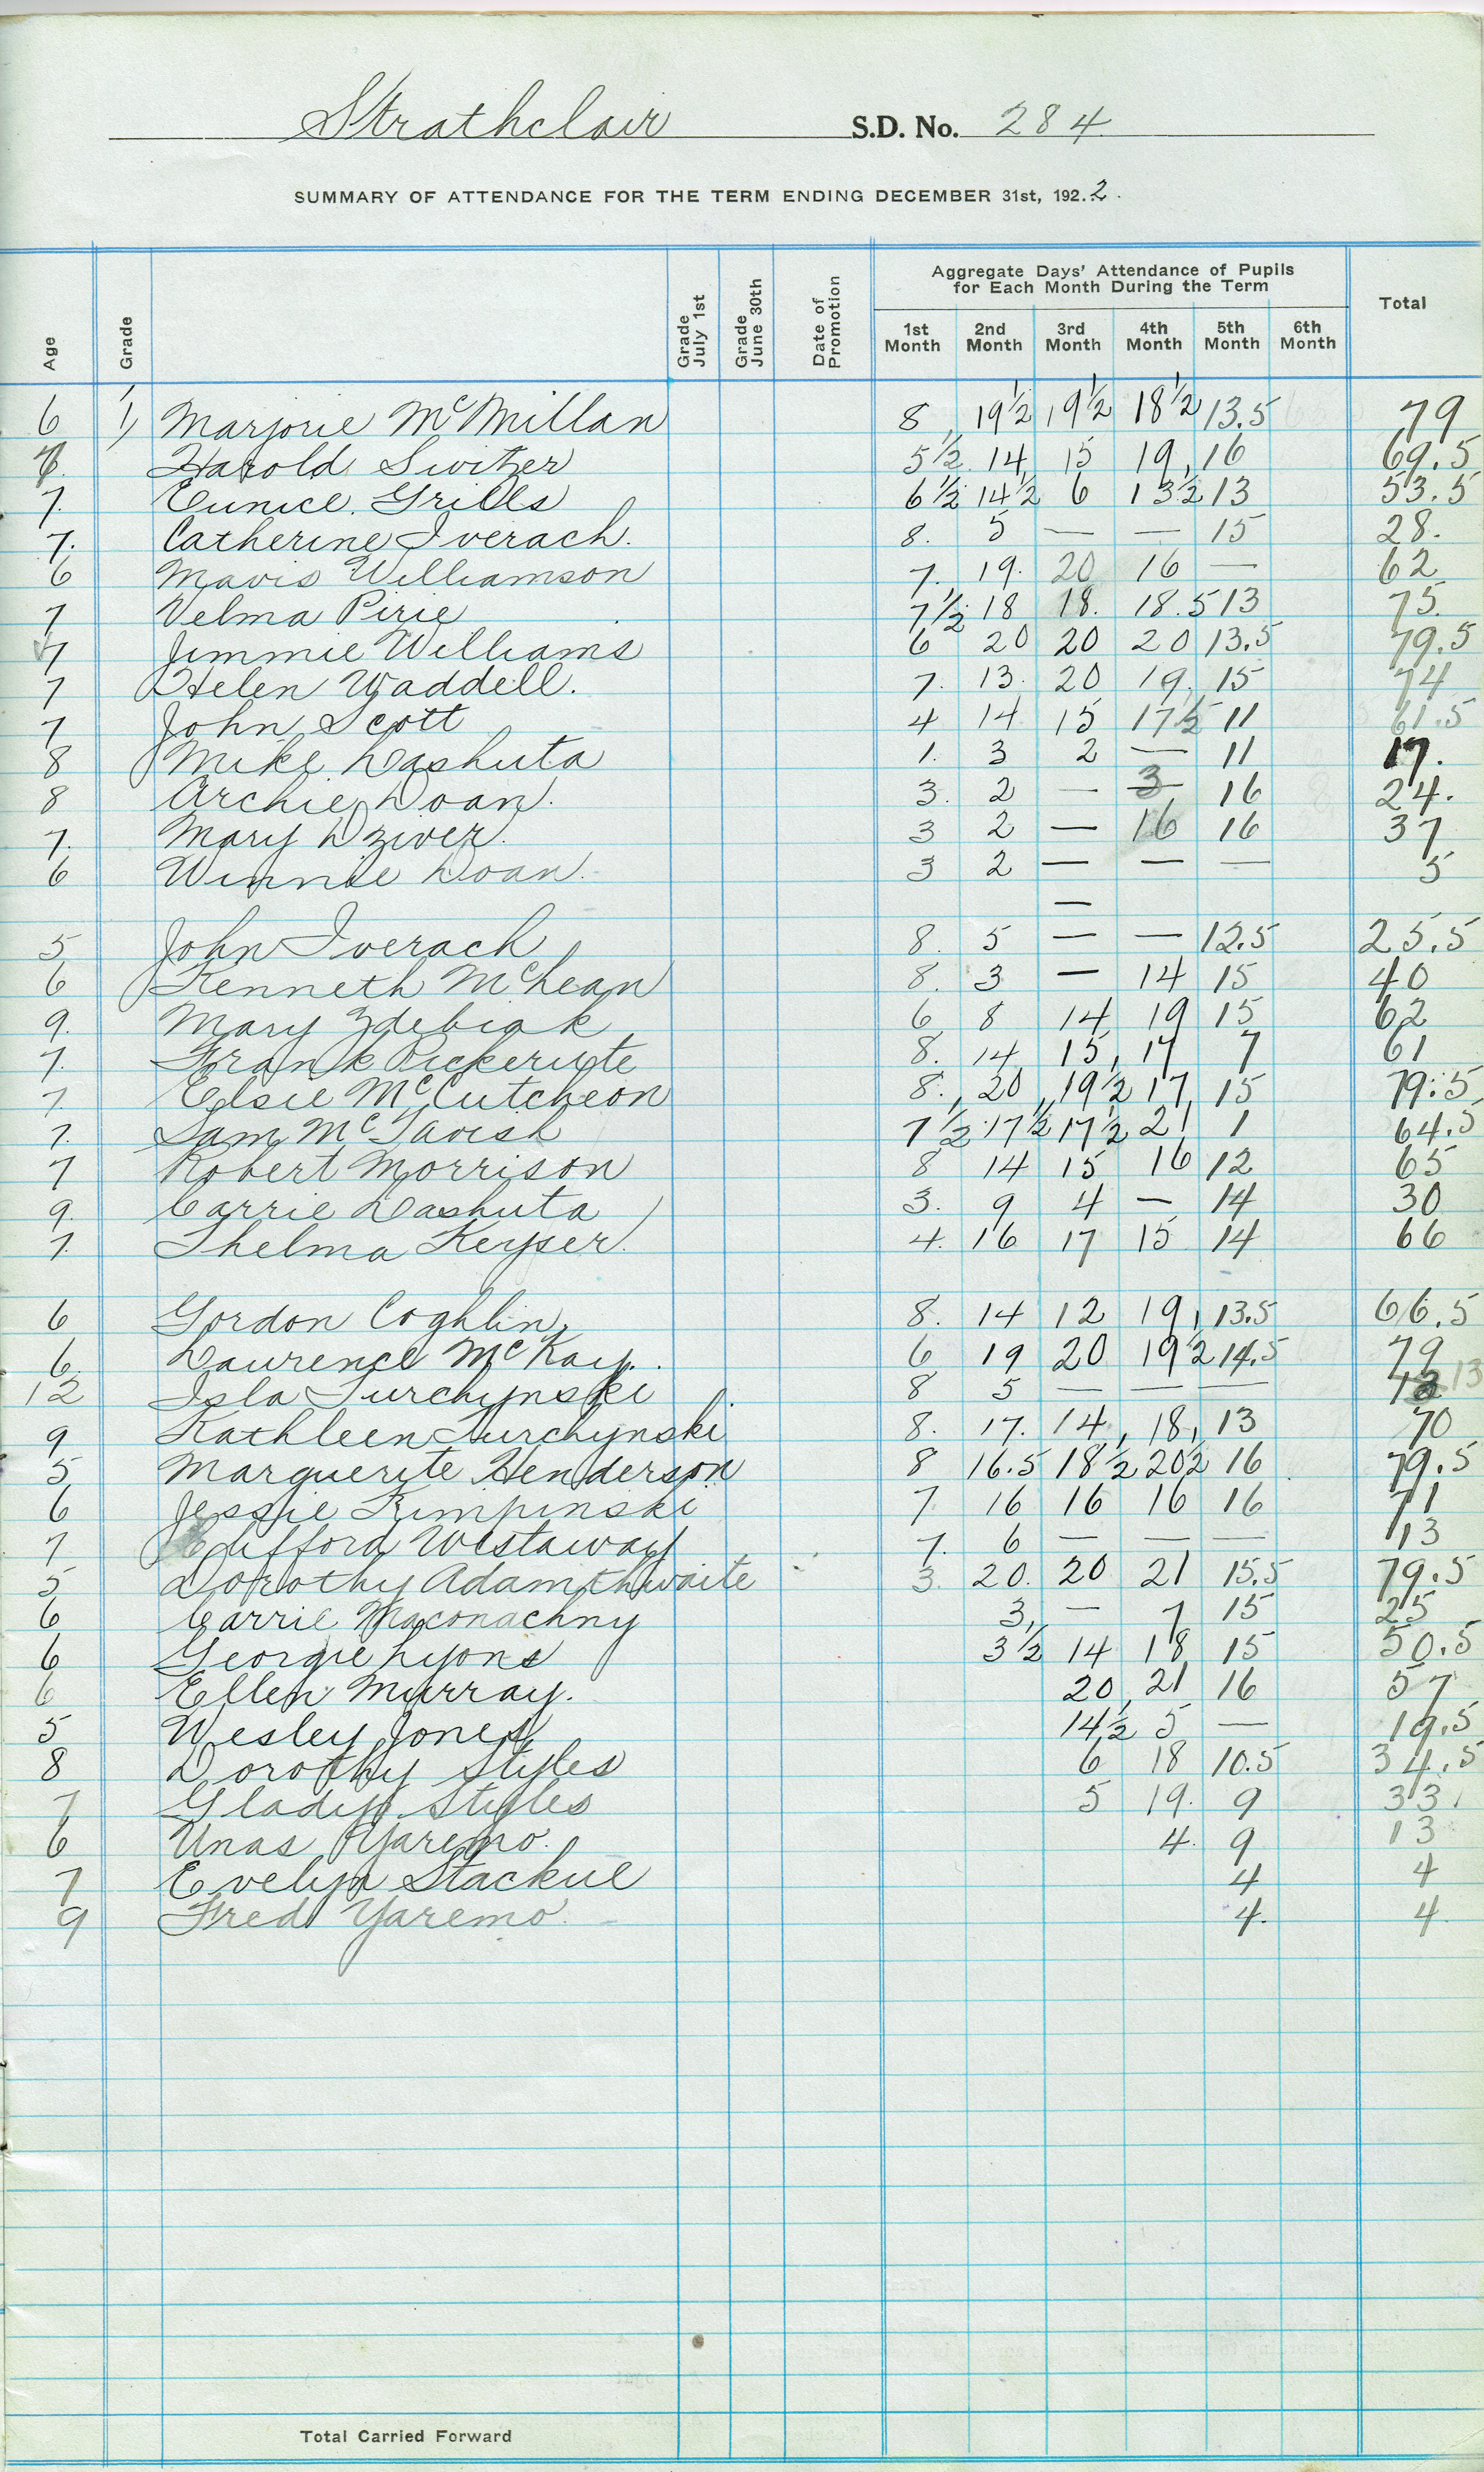 Strathclair S.D. No. 284
SUMMARY OF ATTENDANCE FOR THE TERM ENDING DECEMBER 31st, 1922.
Age Grade Grade July 1st Grade June 30th Date of Promotion Aggregate Days' Attendance of Pupils for Each Month During the Term Total
1st Month 2nd Month 3rd Month 4th Month 5th Month 6th Month
6 1 Marjorie McMillan 8 19½ 19½ 18½ 13.5 79
Harold Switzer 5½ 14 15 19 16 69.5
7. Eunice Grills 6½ 14½ 6 13½ 13 53.5
7. Catherine Iverach. 8. 5 — — 15 28.
6 Mavis Williamson 7. 19. 20 16 — 62
7 Velma Pirie 7½ 18 18. 18.5 13 75.
7 Jimmie Williams 6 20 20 20 13.5 79.5
7 Helen Waddell. 7. 13. 20 19. 15 74
7 John Scott 4 14 15 17½ 11 61.5
8 Mike Dashuta 1. 3 2 — 11 17.
8 Archie Doan. 3. 2 — 3 16 24.
7. Mary Dziver. 3 2 — 16 16 37
6 Winnie Doan. 3 2 — — — 5
—
5 John Iverach 8. 5 — — 12.5 25.5
6 Kenneth McLean 8. 3 — 14 15 40
9. Mary Zdebiak 6 8 14 19 15 62
7. Frank 8. 14 15 17 7 61
7. Elsie McCutcheon 8. 20 19½ 17 15 79.5
7. Sam McTavish 7½ 17½ 17½ 21 1 64.5
7 Robert Morrison 8 14 15 16 12 65
9. Carrie Dashuta 3. 9 4 — 14 30
7. Thelma Keyser. 4. 16 17 15 14 66
6 Gordon Coghlin 8. 14 12 19 13.5 66.5
6. Laurence McKay. 6 19 20 19½ 14.5 79
12 Isla Turchynski 8 5 — — — 13 13
9 Kathleen Turchynski 8. 17. 14 18 13 70
5 Marguerite Henderson 8 16.5 18½ 20½ 16 79.5
6 Jessie Rimpinski 7 16 16 16 16 71
7 Clifford Westaway 7. 6 — — — 13
5 Dorothy Adamthwaite 3. 20. 20 21 15.5 79.5
6 Carrie Maconachny 3 — 7 15 25
6 Georgie Lyons 3½ 14 18 15 50.5
6 Ellen Murray. 20 21 16 57
5 Wesley Jones 14½ 5 — 19.5
8 Dorothy Styles 6 18 10.5 34.5
7 Gladys Styles 5 19. 9 33.
6 Unas Yaremo. 4. 9 13
7 Evelyn Stackue 4 4
9 Fred Yaremo. 4. 4
Total Carried Forward